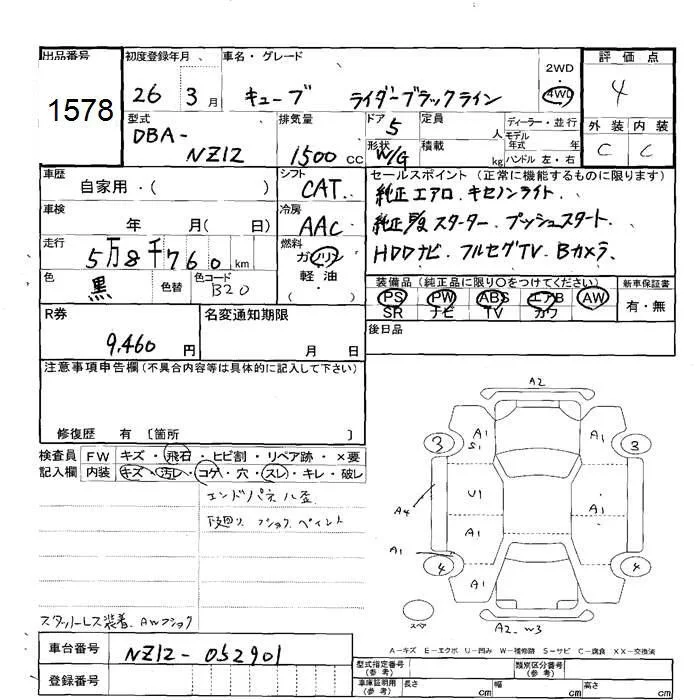 出品番号 初度登録年月 車名・グレード 2WD ・ 4WD 評価点
1578 26 3月 キューブ ライダーブラックライン 4
型式 排気量 ドア 定員 ディーラー・並行 外装 内装
DBA- 5 人 モデル年式 年 C C
NZ12 1500cc 形状 W/G 積載 kg ハンドル 左・右
車歴 シフト セールスポイント (正常に機能するものに限ります)
自家用・( ) CAT 純正エアロ.キセノンライト.
車検 冷房 純正 スターター.プッシュスタート.
年 月( 日) AAC HDDナビ.フルセグTV.Bカメラ.
走行 燃料
5万8千760km ガソリン
色 色替 色コード 軽・油
黒 B20 ・( )
装備品(純正品に限り○をつけてください) 新車保証書
PS PW ABS エアB AW 有・無
SR ナビ TV カワ
R券 名変通知期限 後日品
9,460円 月 日
注意事項申告欄(不具合内容等は具体的に記入して下さい)
修復歴 有 〔箇所 〕
検査員 FW キズ・飛石・ヒビ割・リペア跡・×要
記入欄 内装 キズ・汚レ・コゲ・穴・スレ・キレ・破レ
エンドパネル歪
下廻り フショク.ペイント
スタットレス装着.AWフショク
A2
3 A1 S1 A1 3
U1
A4 A1 A1
A1
4 A1 4
スペア
A2.W3
A－キズ E－エクボ U－凹み W－補修跡 S－サビ C－腐食 XX－交換済
車台番号 NZ12-052901
登録番号
型式指定番号(参考) 類別区分番号(参考)
車庫証明用(参考) 長さ cm 幅 cm 高さ cm